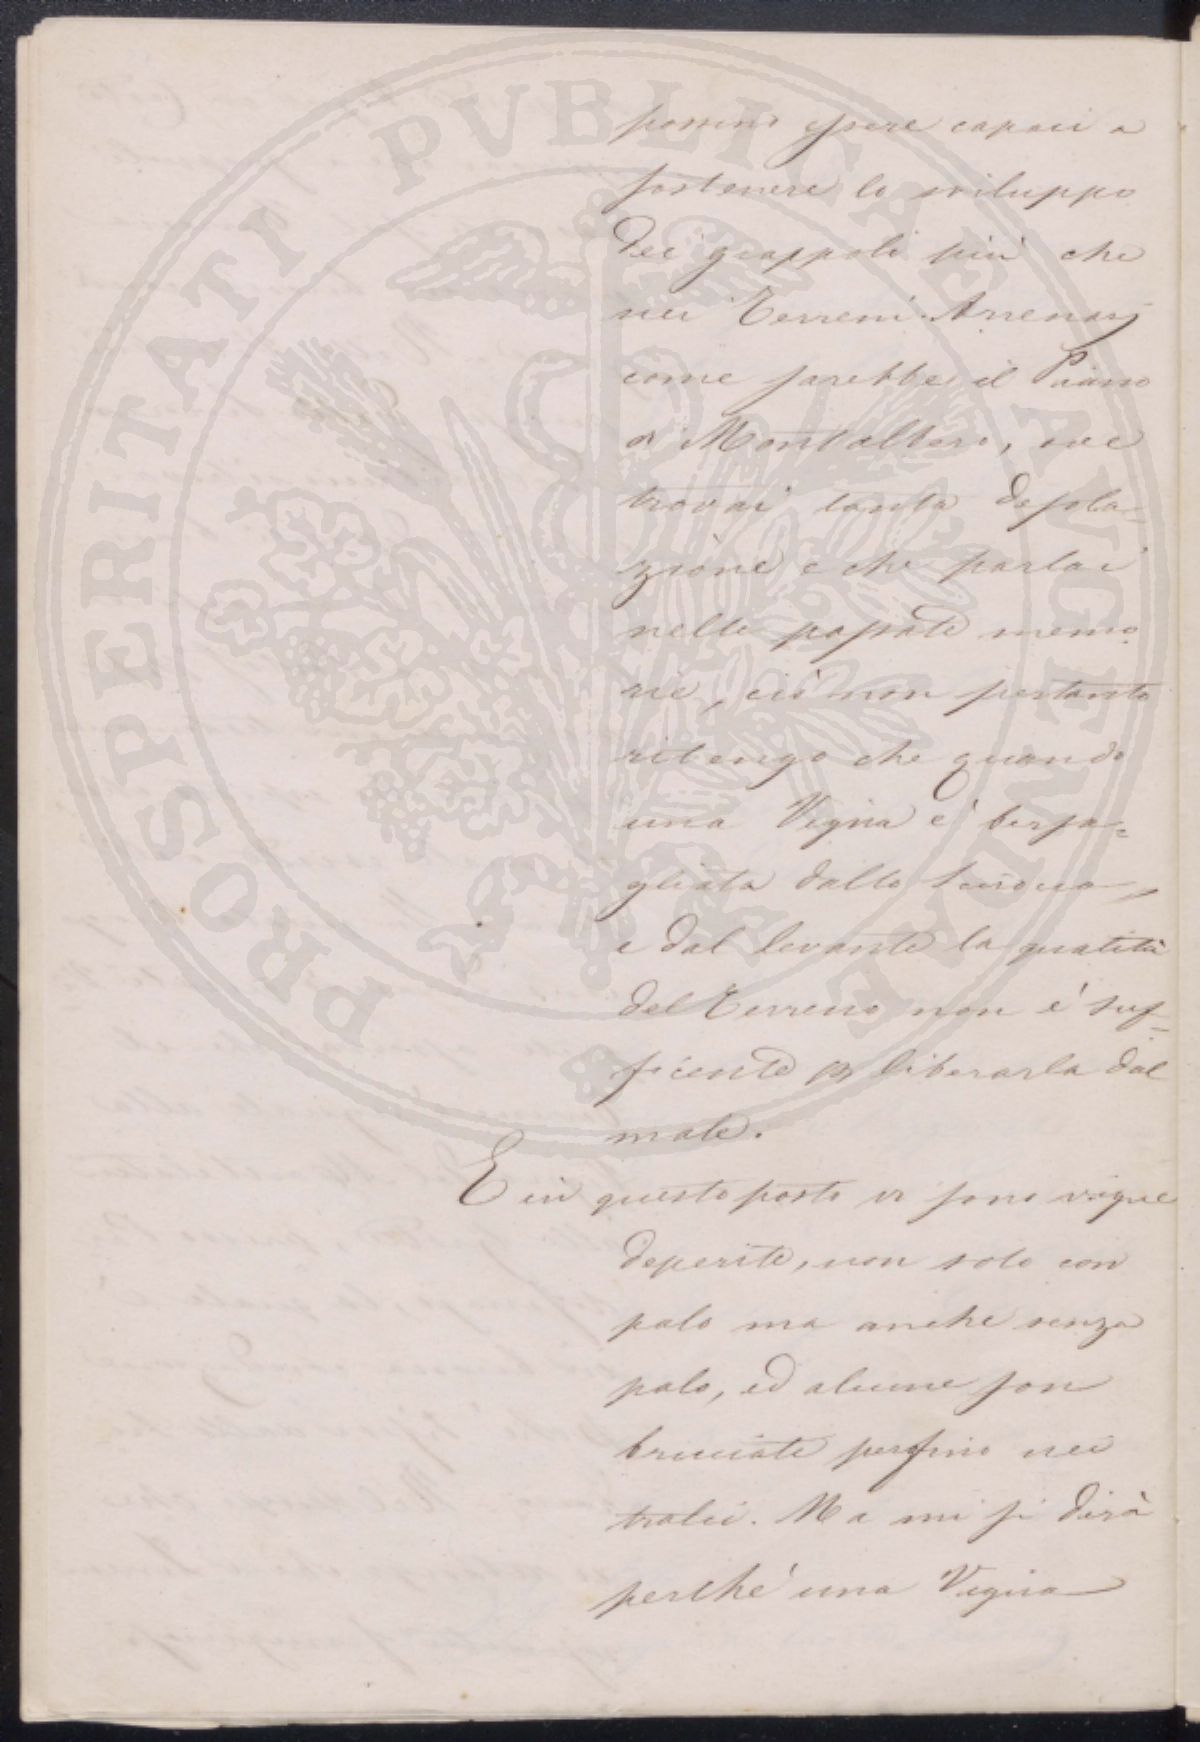 possino essere capaci a
sostenere lo sviluppo
dei grappoli più che
nei Terreni Arrenarj
come sarebbe il Piano
di Montalbano, ove
trovai tanta desola-
zione e che parlai
nelle passate memo
rie, ciò non pertanto
ritengo che quando
una Vigna è bersa=
gliata dallo Scirocco,
e dal levante la qualità
del Terreno non è suf-
ficente per liberarla dal
male.
E in questo posto vi sono vigne
deperite, non solo con
palo ma anche senza
palo, ed alcune son
bruciate persino nei
tralci. Ma mi si dirà
perché una Vigna
PROSPERITATI PVBLICAE AVGENDAE